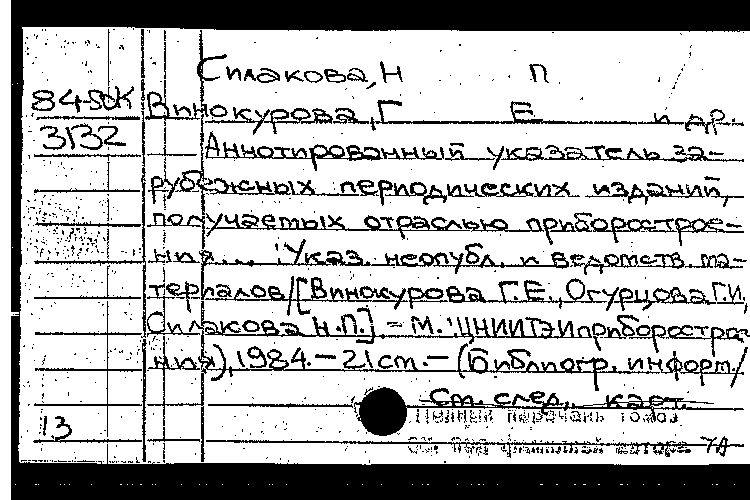 Силакова, Н П
84-5ок Винокурова, Г Е и др.
3132
Аннотированный указатель за-
рубежных периодических изданий,
получаемых отраслью приборострое-
ния... : Указ. неопубл. и ведомств. ма-
териалов / [Винокурова Г.Е., Огурцова Г.И,
Силакова Н.П.] - М. : ЦНИИТЭИприборострое-
ния), 1984. - 21 ст. - (Библиогр. информ. /
См. след. карт.
13 Полный перечень томов
См. под фамилией автора 7А